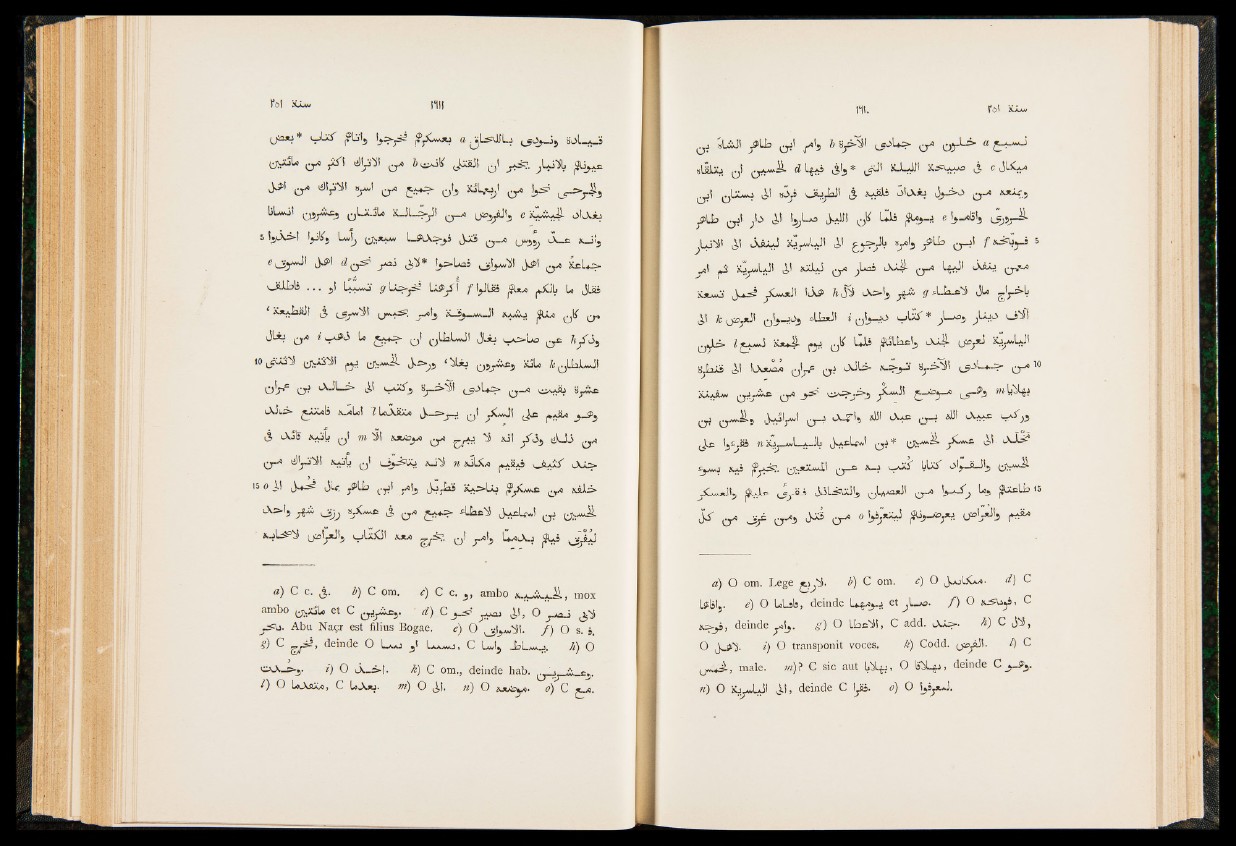 سنة ٢٥١ ١٦١٠
لسبع a خلون من جمادى الآخرة b وامر ابن طاهر الشاه بن
ميكال c فى صبيحة الليلة التى *وافى فيها d الحسين ان يتلقّاه
ويمنعه من دخول بغداد فلقيه فى الطريف فردّه الى بستان ابن
الحرورىّ واقاموا e يومهم فلمّا كان الليل صاروا الى دار ابن طاهر
5 فوبّخه f ابن طاهر وامره بالرجوع الى الياسريّة لينفذ الى الانبار
مع من ينفذ اليها من الجند فصار من ليلته الى الياسريّة ثم امر
باخراج مال لاعطاء g شهر واحد لأهل h هذا العسكر فحمل تسعة
آلاف دينار وصار *كتّاب ديوان i العطاء وديوان العرض k الى
الياسريّة لعرض الجند واعطائهم فلمّا كان يوم الجمعة لسبع l خلون
10 من جمادى الآخرة توجّه خالد بن عمران مُصْعِدا الى قنطرة
بهلايا m وهى موضع السِكْر وخرجت نحو من عشرين سفينة
وركب عبيد الله بن عبد الله واحمد بن اسرائيل والحسن بن
مخلّد الى عسكر الحسين *بن اسماعيل بالياسريّة n فقرءوا على
الحسين والقوّاد كتابا كُتب به عن المستعين يخبرهم فيه بسوء
15 طاعتهم وما ركبوا من العصيان والتخاذل فقرئ عليهم والعسكر
مقيم والعُرّاض يعرضونهم ليتعرّفوا o من قُتل ومن غرق من كلّ
a) O om. Lege لاربع. b) C om. c) O منكاىىل. d) C
وافاها. e) O فاىاما, deinde يومهما et صار. f) O فوىخه, C
فوجه, deinde وامر. g) O الاعطا, C add. جند. h) C لال,
O لاهل. i) O transponit voces. k) Codd. الفرض. l) C
لخمس, male. m)? C sic aut بهلايا, O بهلاىا, deinde C وهو.
n) O الى الياسرية, deinde C فقرا. o) O لىعرفوا.
سنة ٢٥١ ١٦١١
قيادة ونودى باللحاق a بعسكرهم فخرجوا واتاهم كتاب *بعض
عيونهم بالانبار يخبر ان القتلى كانت b من الاتراك اكثر من مائتين
والجرحى نحوا من اربعمائة وان جميع من اسره الاتراك من اهل
بغداد الجيشيّة c والفروض من الرجّالة مائتان وعشرون انسانا
5 وانه عدّ رؤوس من قتل فوجدها سبعين رأسا وكانوا اخذوا
جماعة من اهل الاسواق فصاحوا *لابى نصر نحن d اهل السوق e
فقال ما بالكم معهم فقالوا f أُكرهنا فخرجنا g تسبّبا او ... فاطلق
من كان منهم يشبه السوقة وامر بحبس الاسرى فى القطيعة،
وذكر h عن صاحب لبغال السلطان ان جميع ما ذهب i من بغال
10 السلطان k مائة وعشرون بغلا، ورحل الحسين يوم الاثنين لاثنتى
عشرة بقيت من جمادى الآخرة وكتب الى خالد بن عمران
وهو مقيم على السكر ان يرحل متقدّما l امامه فامتنع خالد
من ذلك وذكر انه لا يبرح من موضعه الّا m ان يأتيه قائد فى
جند كثيف فيقيم مكانه n لانه يتخوّف ان يأتيه الاتراك من
15 خلفه من عسكرهم بناحية قطربّل وامر ابن طاهر بمال فحُمل الى o
الحسين بن اسماعيل لاعطاء جميع من فى عسكره رزق شهر واحد
لِيُفَرَّق فيهم بدِمِمّا وامر ان يخرج معه الكتّاب والعرّاض لاصحابه
a) C c. فى. b) C om. c) C c. و, ambo الحبشية, mox
ambo مائتين et C وعشرين. d) C الى نصير نحو, O لابى نصر
بحر. Abu Naçr est filius Bogae. e) O الاسواق. f) O s. ف.
g) C فخرج, deinde O او نسا, C ىسىبا. h) O
وحدث. i) O اخذ. k) C om., deinde hab. وعشرين.
l) O متقدما, C بعدما. m) O الى. n) O موضعه. o) C مع.